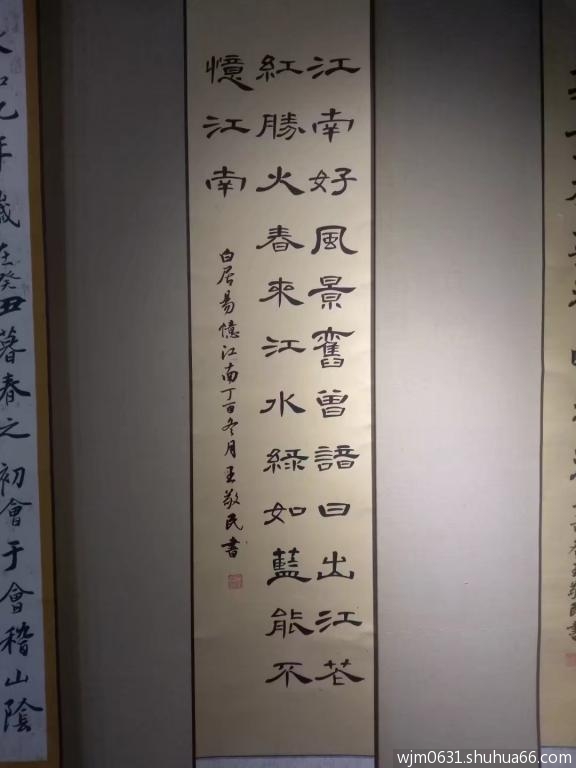 敬民書
江南好風景舊曾諳日出江花
紅勝火春來江水綠如藍能不
憶江南
白居易憶江南丁酉冬月王敬民書
永和九年歲在癸丑暮春之初會于會稽山陰
wjm0631.shuhua66.com